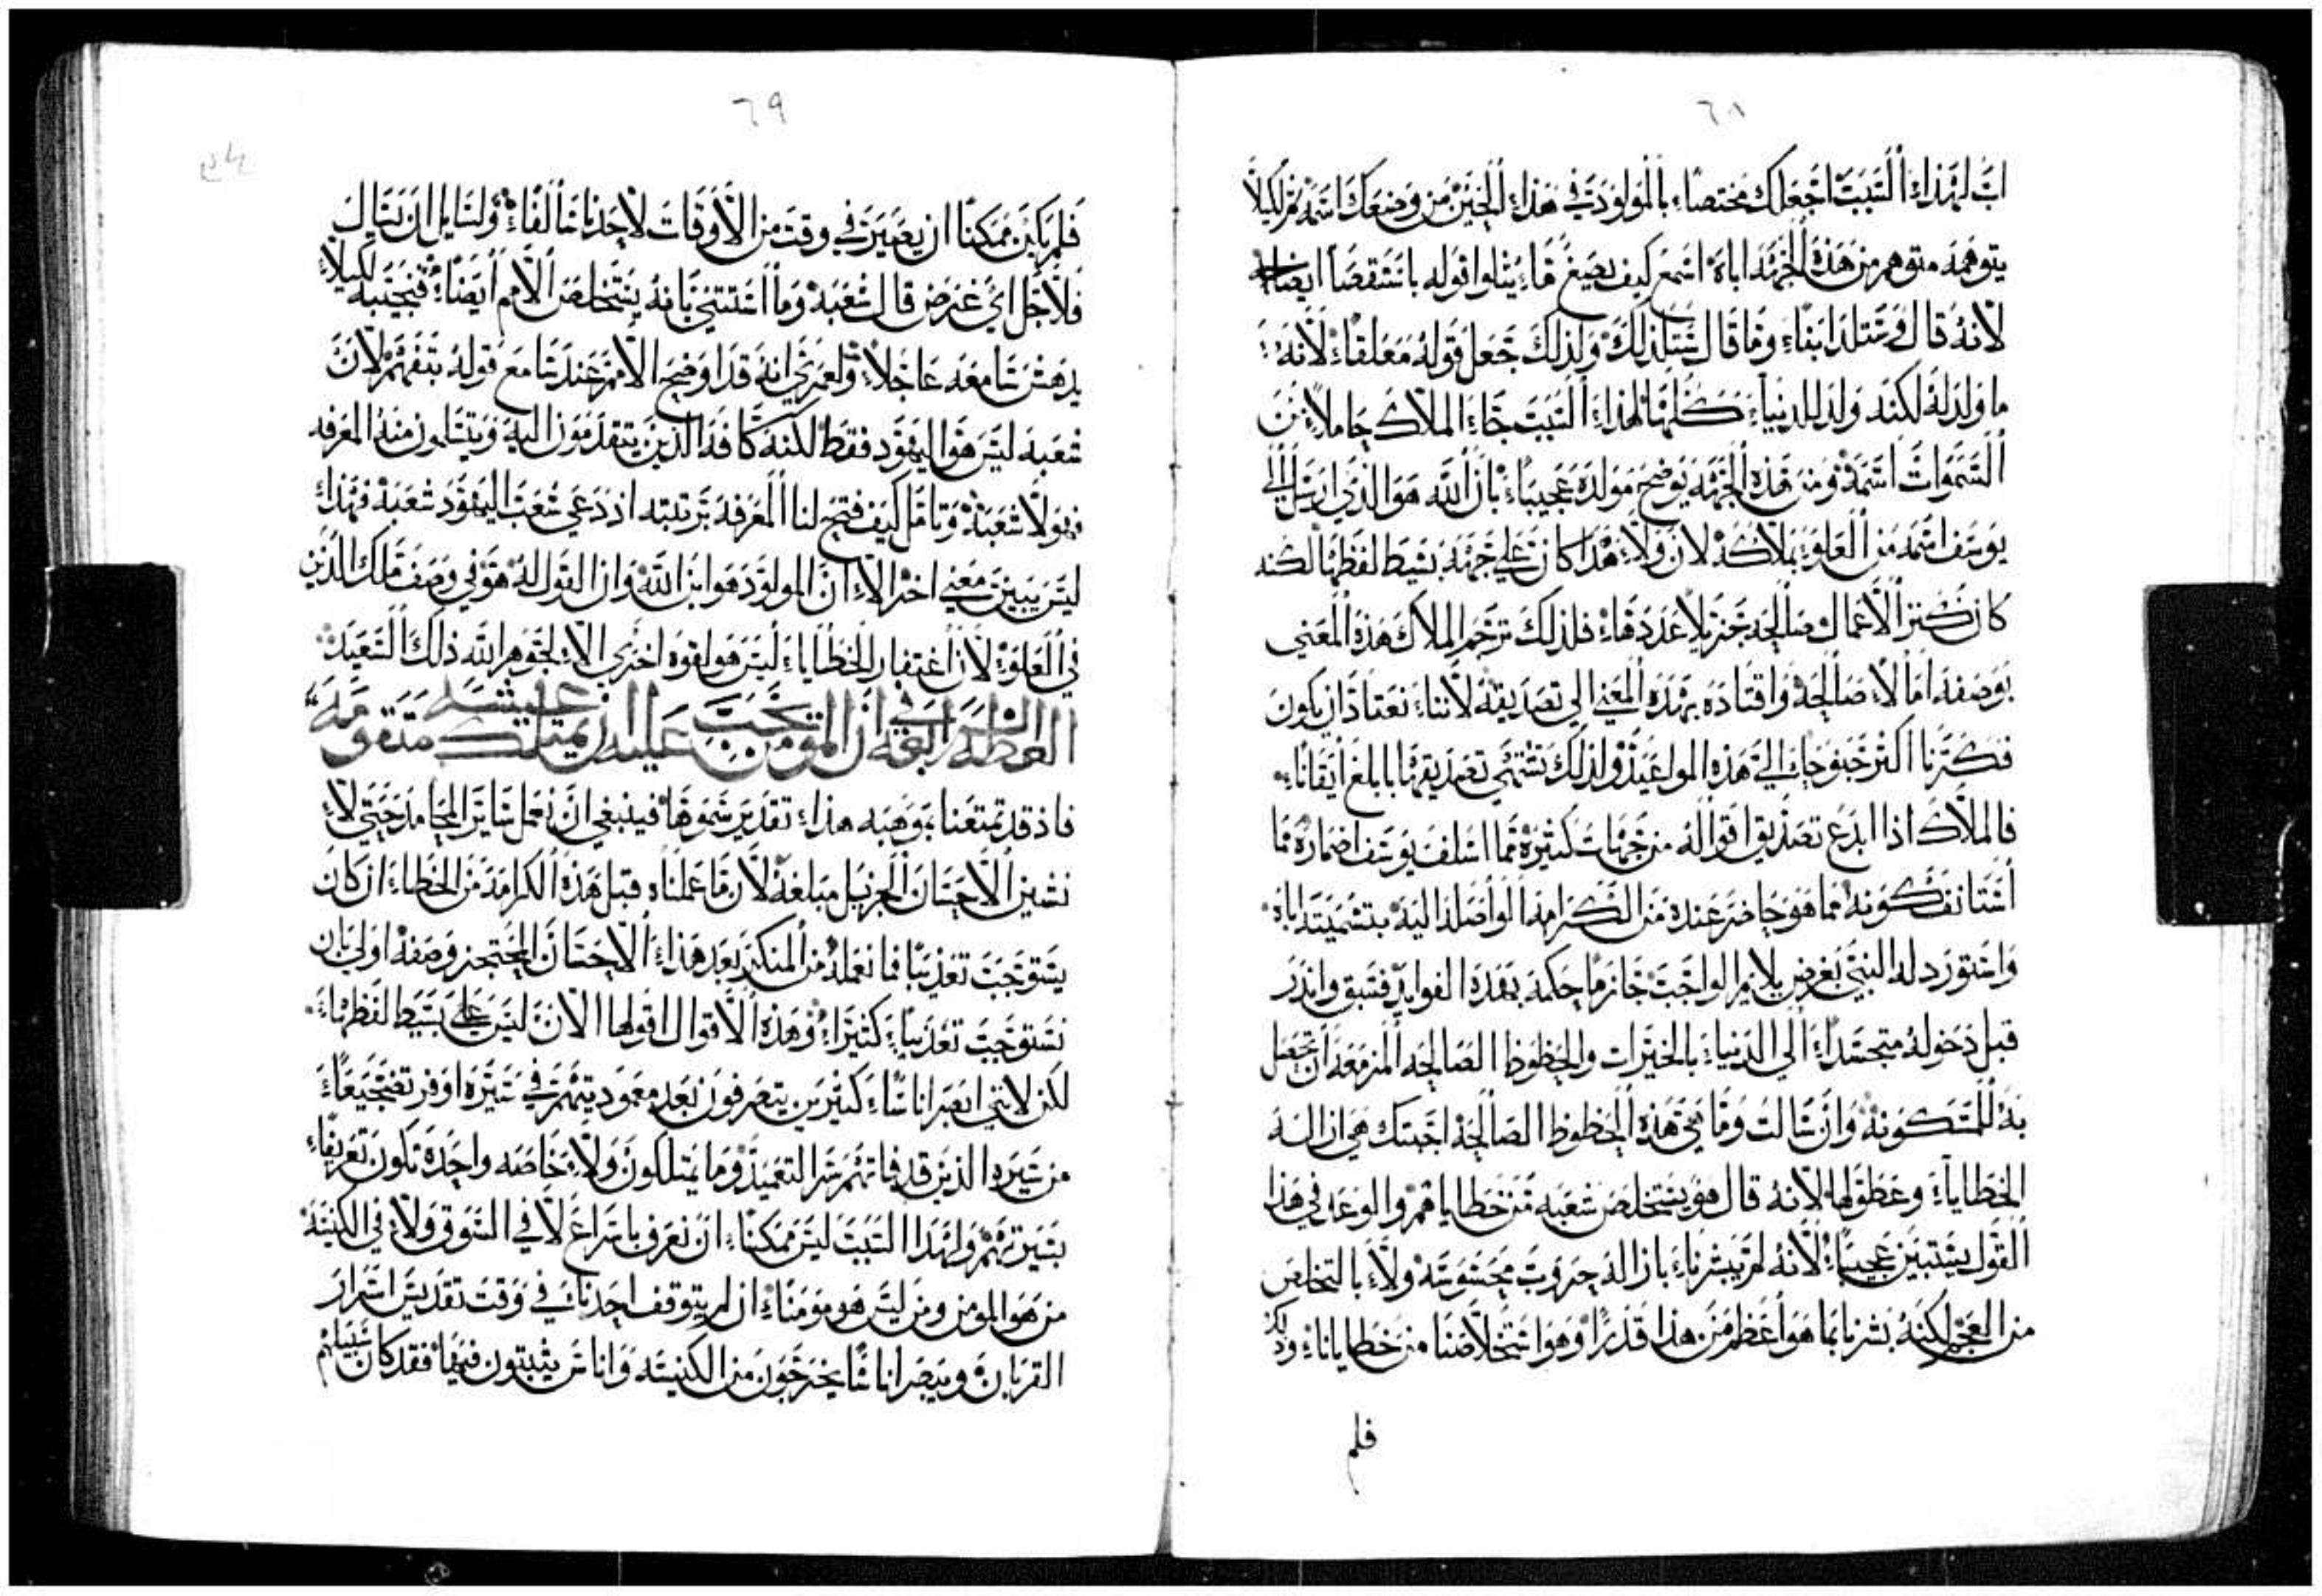 ٦٨
اب لهذا السبب اجعلك مختصا بالمولود في هذا الحين من وضعك اسمه ثم لكيلا
يتوهمه متوهم من هذه الجهه اباه اسمع كيف يصيغ ما يتلوا قوله باستقصا ايضاحه
لانه قال وستلد ابنا وما قال ستلد لك ولذلك جعل قوله معلقا لانه
ما ولد له لكنه ولد للدنيا كلها لهذا السبب جا الملاك حاملا من
السموات اسمه ومن هذه الجهه يوضح مولده عجيبا بان الله هو الذي ارسل الي
يوسف اسمه من العلو بملاكه لان ولا هذا كان علي جهة بسيط لفظها لكنه
كان كنز الاعمال صالحه جزيلا عددها فلذلك ترجم الملاك هذه المعني
بوصفه امالا صالحه واقتاده بهذه المعني الي تصديقه لاننا نعتاد ان يكون
فكرنا اكثر جنوحا الي هذه المواعيد ولذلك نشتهي تصديقها بابلغ ايقانا
فالملاك اذا ابدع تصديق اقواله من جهات كثيرة مما اسلف يوسف اضماره مما
استانف كونه مما هو حاضر عنده من الكرامه الواصله اليه بتسميته اباه
واستورد له النبي بغرض يلايم الواجب جازما حكمه بهذه الفوايد فسبق وانذر
قبل دخوله متجسدا الي الدنيا بالخيرات والحظوظ الصالحه المزمعه ان تحصل
به للمسكونه وان سالت وما هي هذه الحظوظ الصالحه اجبتك هي ازالة
الخطايا وعطولها لانه قال هو يستخلص شعبه من خطاياهم والوعد في هذا
القول يستبين عجيبا لانه لم يبشرنا بازالة حروب محسوسه ولا بالتخلص
من العجم لكنه بشرنا بما هو اعظم من هذا قدرا وهو استخلاصنا من خطايانا وذلك
فلم
٦٩
فلم يكن ممكنا ان يصير في وقت من الاوقات لاحد الناس الفا ولسايل ان يسال
فلاجل اي غرض قال شعبه وما استثني بانه يستخلص الامم ايضا فنجيبه لكيلا
يدهش سامعه عاجلا ولعمري انه قد اوضح الامم عند سامع قوله بتفهم لان
شعبه ليس هو اليهود فقط لكنه كافة الذين يتقدمون اليه ويتسلمون منه المعرفه
فهولا شعبه وتامل كيف فتح لنا المعرفه بترتبته اذ دعي شعب اليهود شعبه فهذا
ليس يبين معني اخر الا ان المولود هو ابن الله وان القول له هو في وصف ملك الذين
في العلو لان اغتفار الخطايا ليس هو لقوه اخري الا لجوهر الله ذلك السعيد
العظه الرابعه في ان المومن يجب عليه ان يمتلك عيشه متقومه
فاذ قد تمتعنا بموهبه هذا تقدير سموها فينبغي ان نعمل ساير المحامد حتي لا
نشين الاحسان الجزيل مبلغه لان ما عملناه قبل هذه الكرامه من الخطا ان كان
يستوجب تعذيبا فما نعمله من المنكر بعد هذا الاحسان المحتجز وصفه اولي بان
نستوجب تعذيبا كثيرا وهذه الاقوال اقولها الان ليس علي بسيط لفظها
لكن لانني ابصر اناسا كثيرين يتصرفون بعد معموديتهم في سيره اوفر تضجيعا
من سيرة الذين قد فاتهم سر التعميد وما يمتلكون ولا خاصه واحده تكون تعريفا
بسيرتهم ولهذا السبب ليس ممكنا ان نعرف باسراع لا في السوق ولا في الكنيسه
من هو المومن ومن ليس هو مومنا ان لم يتوقف احدنا في وقت تقديس اسرار
القربان ويبصر اناسا يخرجون من الكنيسه واناس يثبتون فيها فقد كان سبيلهم